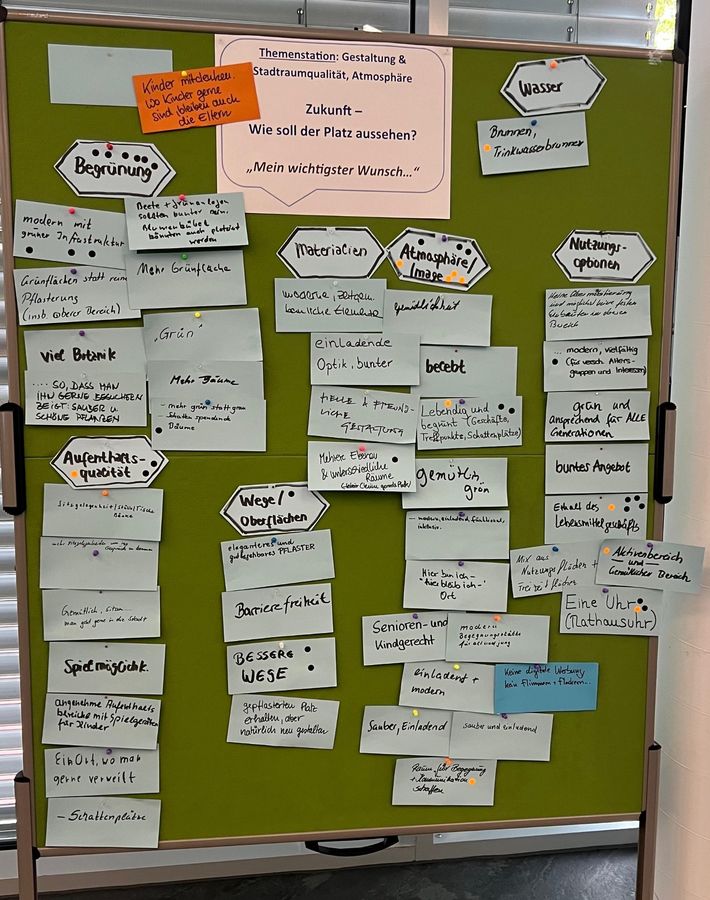 Themenstation: Gestaltung &
Stadtraumqualität, Atmosphäre
Zukunft –
Wie soll der Platz aussehen?
„Mein wichtigster Wunsch...“
Kinder mitdenken.
Wo Kinder gerne
sind bleiben auch
die Eltern
Begrünung
modern mit
grüner Infrastruktur
Beete + Grünanlagen
sollten bunter sein.
Blumenkübel
könnten auch platziert
werden
Grünflächen statt reine
Pflasterung
(insb. oberer Bereich)
Mehr Grünfläche
viel Botanik
„Grün“
.... SO, DASS MAN
IHN GERNE BESUCHERN
ZEIGT: SAUBER U.
SCHÖNE PFLANZEN
Mehr Bäume
- mehr grün statt grau
Schatten spendende
Bäume
Aufenthalts-
qualität
Sitzgelegenheiten/
Bäume
Gemütlich, sitzen...
man geht gerne in die Stadt
Spielmöglichk.
angenehme Aufenthalts
bereiche mit Spielgeräten
für Kinder
Ein Ort, wo man
gerne verweilt
- Schattenplätze
Wege/
Oberflächen
eleganteres und
PFLASTER
Barrierefreiheit
BESSERE
WEGE
gepflasterten Platz
erhalten, aber
natürlich neu gestalten
Materialien
moderne,
Elemente
einladende
Optik, bunter
HELLE & FREUND-
LICHE
GESTALTUNG
Mehrere Ebenen
& unterschiedliche
Räume
Atmosphäre/
Image
gemütlichkeit
belebt
Lebendig und
begrünt (Geschäfte,
Treffpunkte, Schattenplätze)
gemütlich
grün
- modern, einladend,
Hier bin ich -
"hier bleib ich -"
Ort
Senioren- und
Kindgerecht
moderne
Begegnungsstätte
für alt und jung
einladend +
modern
Keine digitale Werbung,
kein Flimmern + Flackern...
Sauber, Einladend
sauber und einladend
Raum für Begegnung
+ Kommunikation
schaffen
Wasser
Brunnen,
Trinkwasserbrunnen
Nutzungs-
optionen
Keine Übermöblierung
und möglichst keine festen
in diesem
Bereich
... modern, vielfältig
(für versch. Alters-
gruppen und Interessen)
grün und
ansprechend für ALLE
Generationen
buntes Angebot
Erhalt des
Lebensmittelgeschäfts
Mix aus
Nutzungsflächen +
Freizeitflächen
Aktivenbereich
- und -
Gemütlicher Bereich
Eine Uhr
(Rathausuhr)